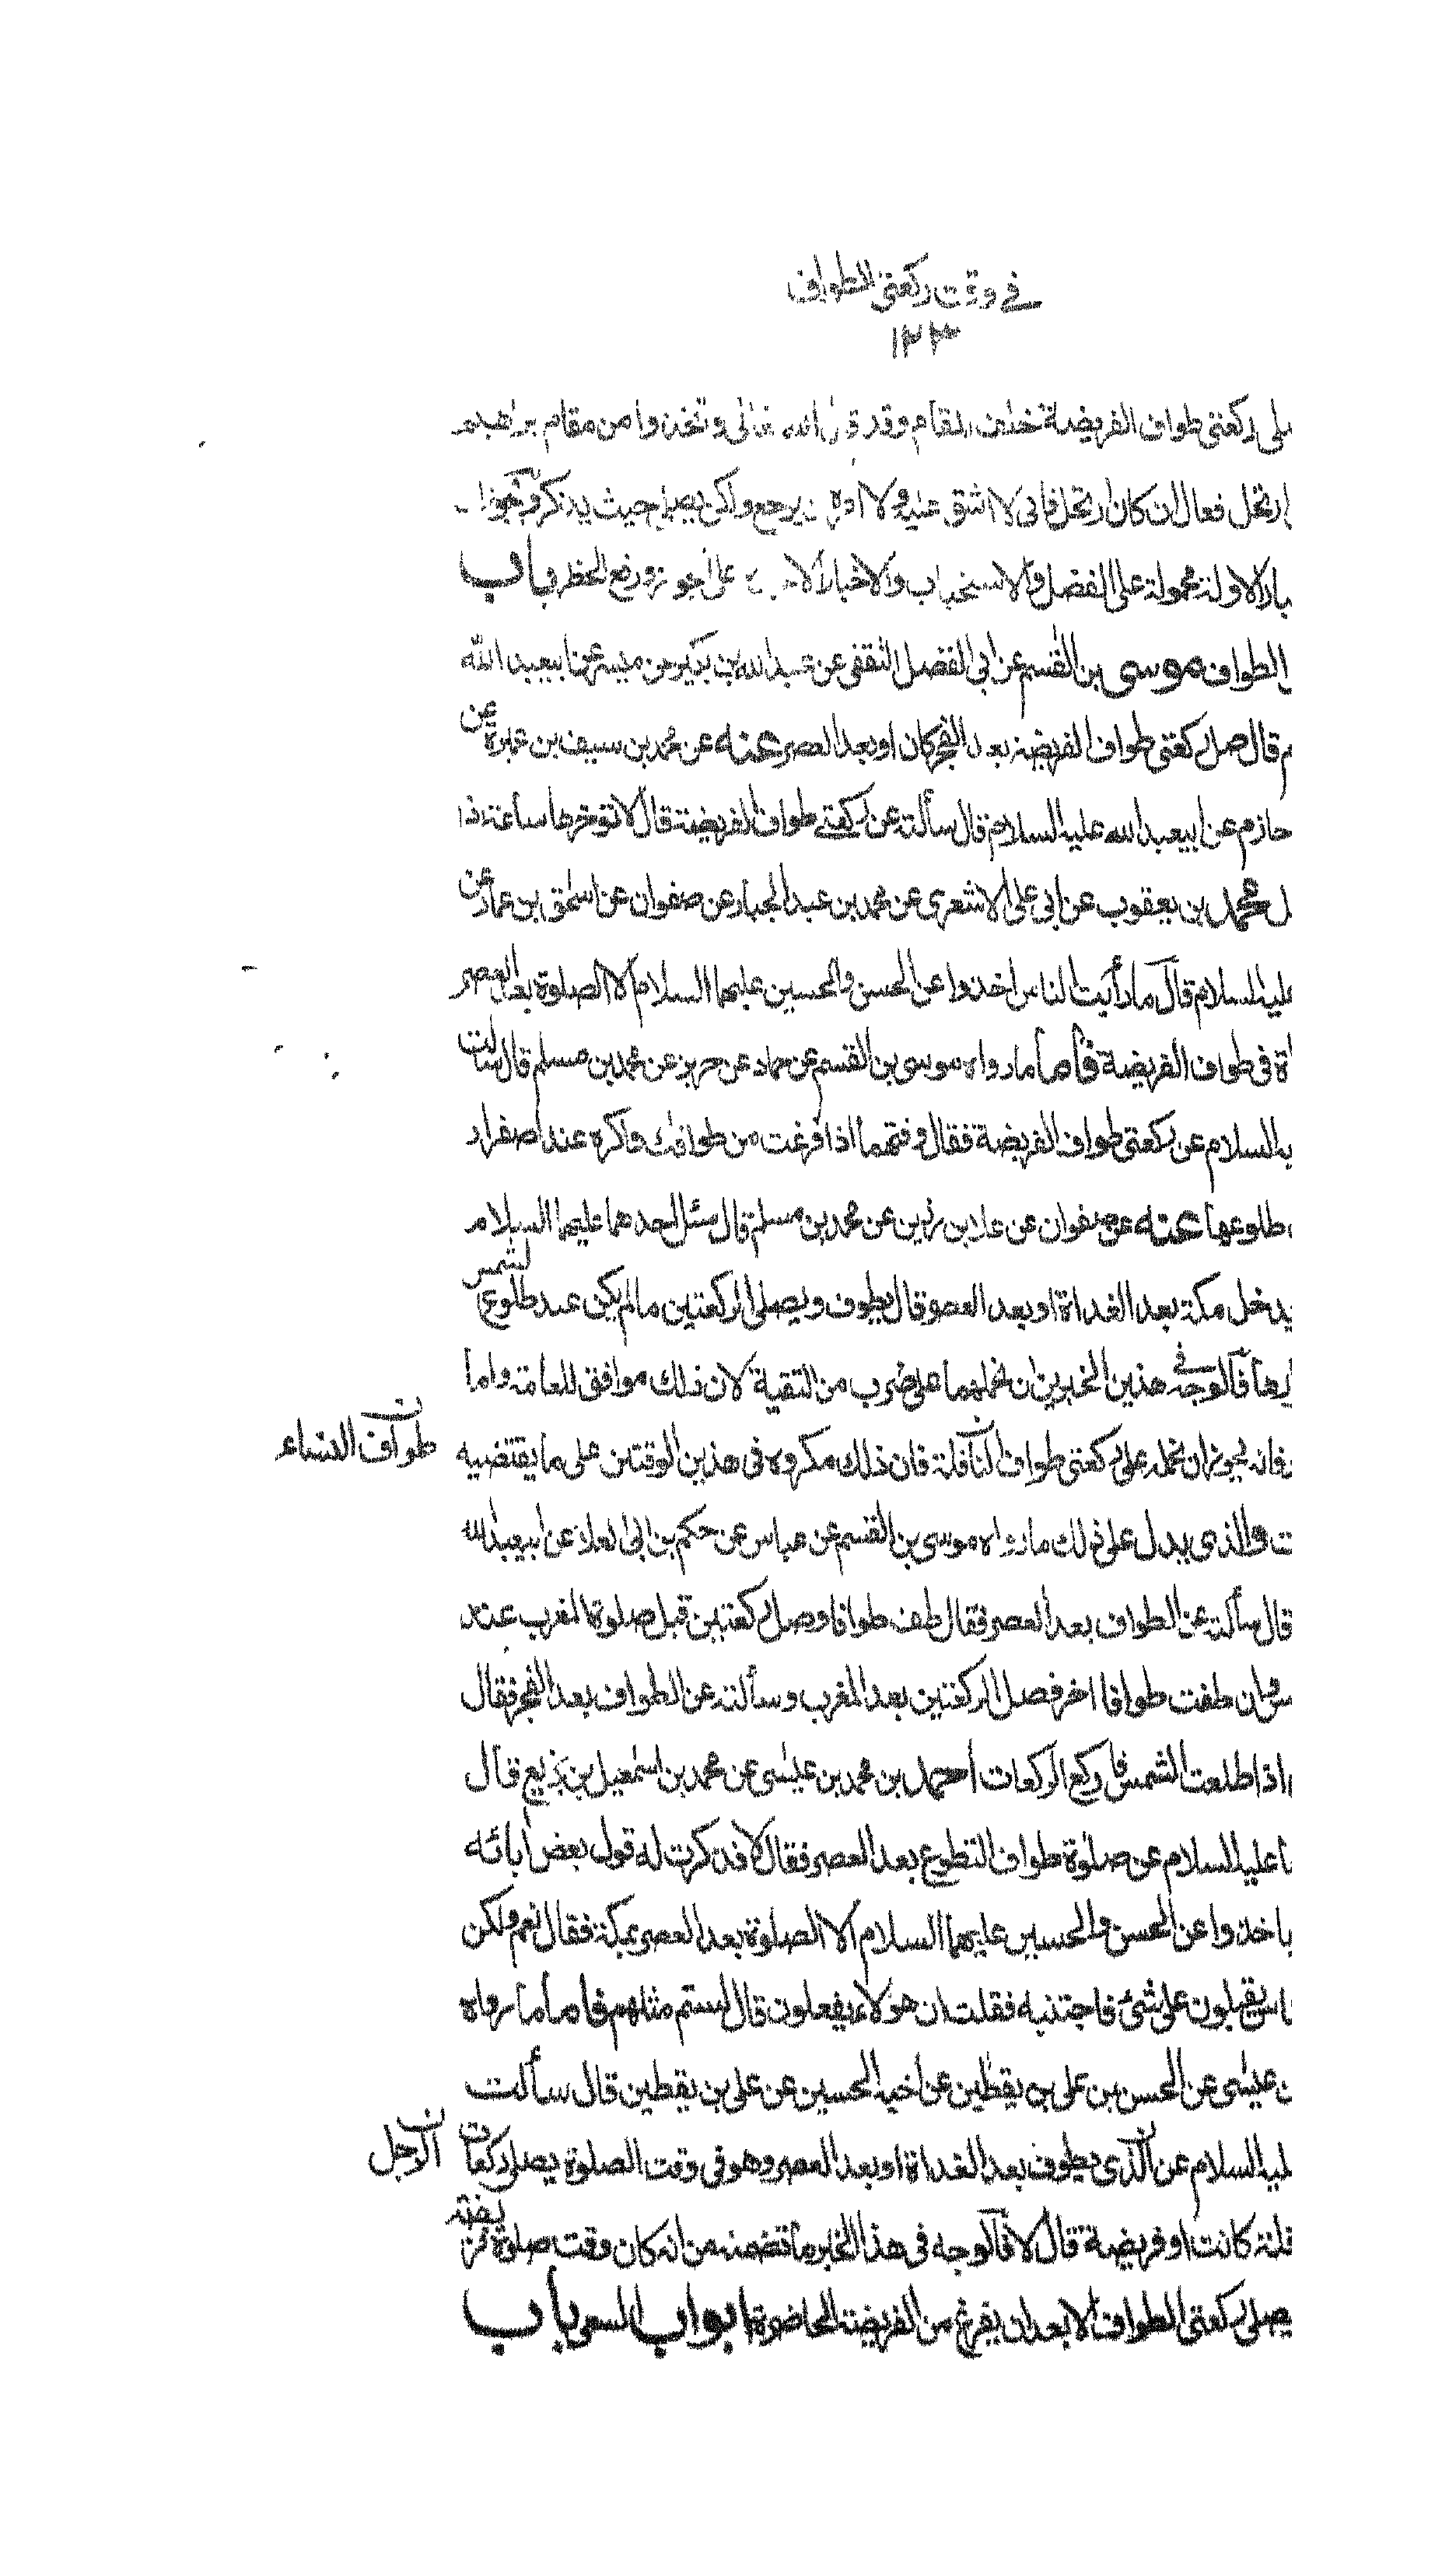 في وقت ركعتي الطواف
١٢٣
صلى ركعتي طواف الفريضة خلف المقام وقد قال الله تعالى واتخذوا من مقام ابرهيم
ارتحل فقال ان كان ارتحل فاني لا اشق عليه ولا امره ان يرجع ولكن يصلي حيث يذكر
بار الاولة محمولة على الفضل والاستحباب والاخبار الاخيرة على الجواز ورفع الحظر باب
الطواف موسى بن القسم عن ابي الفضل الثقفي عن عبدالله بن بكير عن ميسر عن ابيعبد الله
م قال صل ركعتي طواف الفريضة بعد الفجر كان او بعد العصر عنه عن محمد بن سيف بن عميرة عن
حازم عن ابيعبد الله عليه السلام قال سألته عن ركعتي طواف الفريضة قال لا تؤخرها ساعة اذا
محمد بن يعقوب عن ابي علي الاشعري عن محمد بن عبد الجبار عن صفوان عن اسحق بن عمار عن
عليه السلام قال ما رأيت الناس اخذوا عن الحسن والحسين عليهما السلام الا الصلوة بعد العصر
اة في طواف الفريضة فأما ما رواه موسى بن القسم عن حماد عن حريز عن محمد بن مسلم قال سألت
يه السلام عن ركعتي طواف الفريضة فقال وقتهما اذا فرغت من طوافك واكره عند اصفرار
طلوعها عنه عن صفوان عن علا بن رزين عن محمد بن مسلم قال سئل احدهما عليهما السلام
يدخل مكة بعد الغداة او بعد العصر قال يطوف ويصلي الركعتين ما لم يكن عند طلوع الشمس
رها فالوجه في هذين الخبرين ان نحملهما على ضرب من التقية لان ذلك موافق للعامة واما
فانه يجوز ان نحمله على ركعتي طواف النافلة فان ذلك مكروه في هذين الوقتين على ما يقتضيه
طواف النساء ن
ت والذي يدل على ذلك ما رواه موسى بن القسم عن عباس عن حكم بن ابي العلا عن ابيعبد الله
قال سألته عن الطواف بعد العصر فقال طف طوافا وصل ركعتين قبل صلوة المغرب عند
س وان طفت طوافا اخر فصل الركعتين بعد المغرب وسألته عن الطواف بعد الفجر فقال
اذا طلعت الشمس فاركع الركعات احمد بن محمد بن عيسى عن محمد بن اسمعيل بن بزيع قال
ا عليه السلام عن صلوة طواف التطوع بعد العصر فقال لا فذكرت له قول بعض آبائه
ياخذوا عن الحسن والحسين عليهما السلام الا الصلوة بعد العصر بمكة فقال نعم ولكن
اس يقبلون على شئ فاجتنبه فقلت ان هؤلاء يفعلون قال لستم مثلهم فاما ما رواه
ن عيسى عن الحسن بن علي بن يقطين عن اخيه الحسين عن علي بن يقطين قال سألت
ليه السلام عن الذي يطوف بعد الغداة او بعد العصر وهو في وقت الصلوة يصلي ركعات
الرجل ن
فلة كانت او فريضة قال لا فالوجه في هذا الخبر ما تضمنه من انه كان وقت صلوة فريضة
يصلي ركعتي الطواف الا بعد ان يفرغ من الفريضة الحاضرة ابواب السعي باب